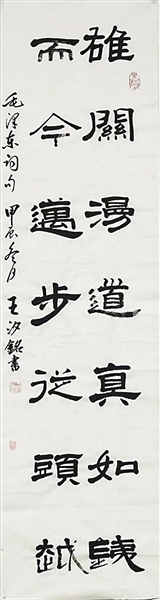 雄關漫道真如鐵
而今邁步從頭越
毛澤東詞句 甲辰冬月 王汐銘書